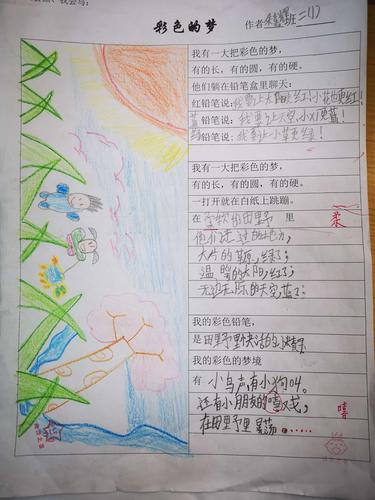 彩色的梦
作者 班二(1)
我有一大把彩色的梦,
有的长,有的圆,有的硬。
他们躺在铅笔盒里聊天:
红铅笔说:我要上太阳更红!小花也更红!
蓝铅笔说:我要上天空,小河更蓝!
绿铅笔说:我要上小草更绿!
我有一大把彩色的梦,
有的长,有的圆,有的硬。
一打开就在白纸上跳蹦。
在 的田野 里
柔
他们走过的地方,
大片的草原,绿了;
温 的太阳,红了;
无边无际的天空,蓝了;
我的彩色铅笔,
是田野里快活的小精灵
我的彩色的梦境
有 小鸟声,有小狗叫。
还有小朋友的嘻戏,
嘻
在田野里 荡……